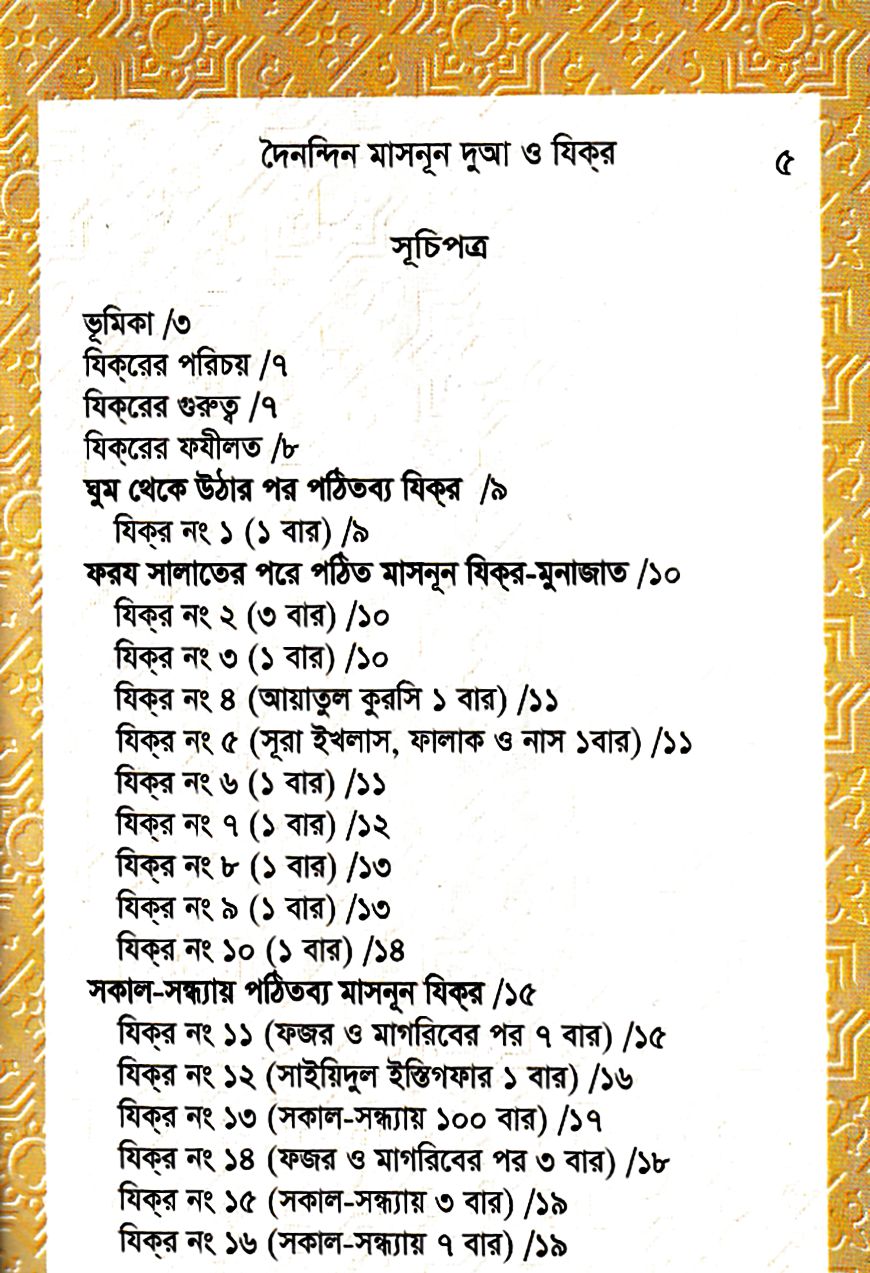 দৈনন্দিন মাসনূন দুআ ও যিক্‌র ৫
সূচিপত্র
ভূমিকা /৩
যিক্‌রের পরিচয় /৭
যিক্‌রের গুরুত্ব /৭
যিক্‌রের ফযীলত /৮
ঘুম থেকে উঠার পর পঠিতব্য যিক্‌র /৯
যিক্‌র নং ১ (১ বার) /৯
ফরয সালাতের পরে পঠিত মাসনূন যিক্‌র-মুনাজাত /১০
যিক্‌র নং ২ (৩ বার) /১০
যিক্‌র নং ৩ (১ বার) /১০
যিক্‌র নং ৪ (আয়াতুল কুরসি ১ বার) /১১
যিক্‌র নং ৫ (সূরা ইখলাস, ফালাক ও নাস ১বার) /১১
যিক্‌র নং ৬ (১ বার) /১১
যিক্‌র নং ৭ (১ বার) /১২
যিক্‌র নং ৮ (১ বার) /১৩
যিক্‌র নং ৯ (১ বার) /১৩
যিক্‌র নং ১০ (১ বার) /১৪
সকাল-সন্ধ্যায় পঠিতব্য মাসনূন যিক্‌র /১৫
যিক্‌র নং ১১ (ফজর ও মাগরিবের পর ৭ বার) /১৫
যিক্‌র নং ১২ (সাইয়িদুল ইস্তিগফার ১ বার) /১৬
যিক্‌র নং ১৩ (সকাল-সন্ধ্যায় ১০০ বার) /১৭
যিক্‌র নং ১৪ (ফজর ও মাগরিবের পর ৩ বার) /১৮
যিক্‌র নং ১৫ (সকাল-সন্ধ্যায় ৩ বার) /১৯
যিক্‌র নং ১৬ (সকাল-সন্ধ্যায় ৭ বার) /১৯